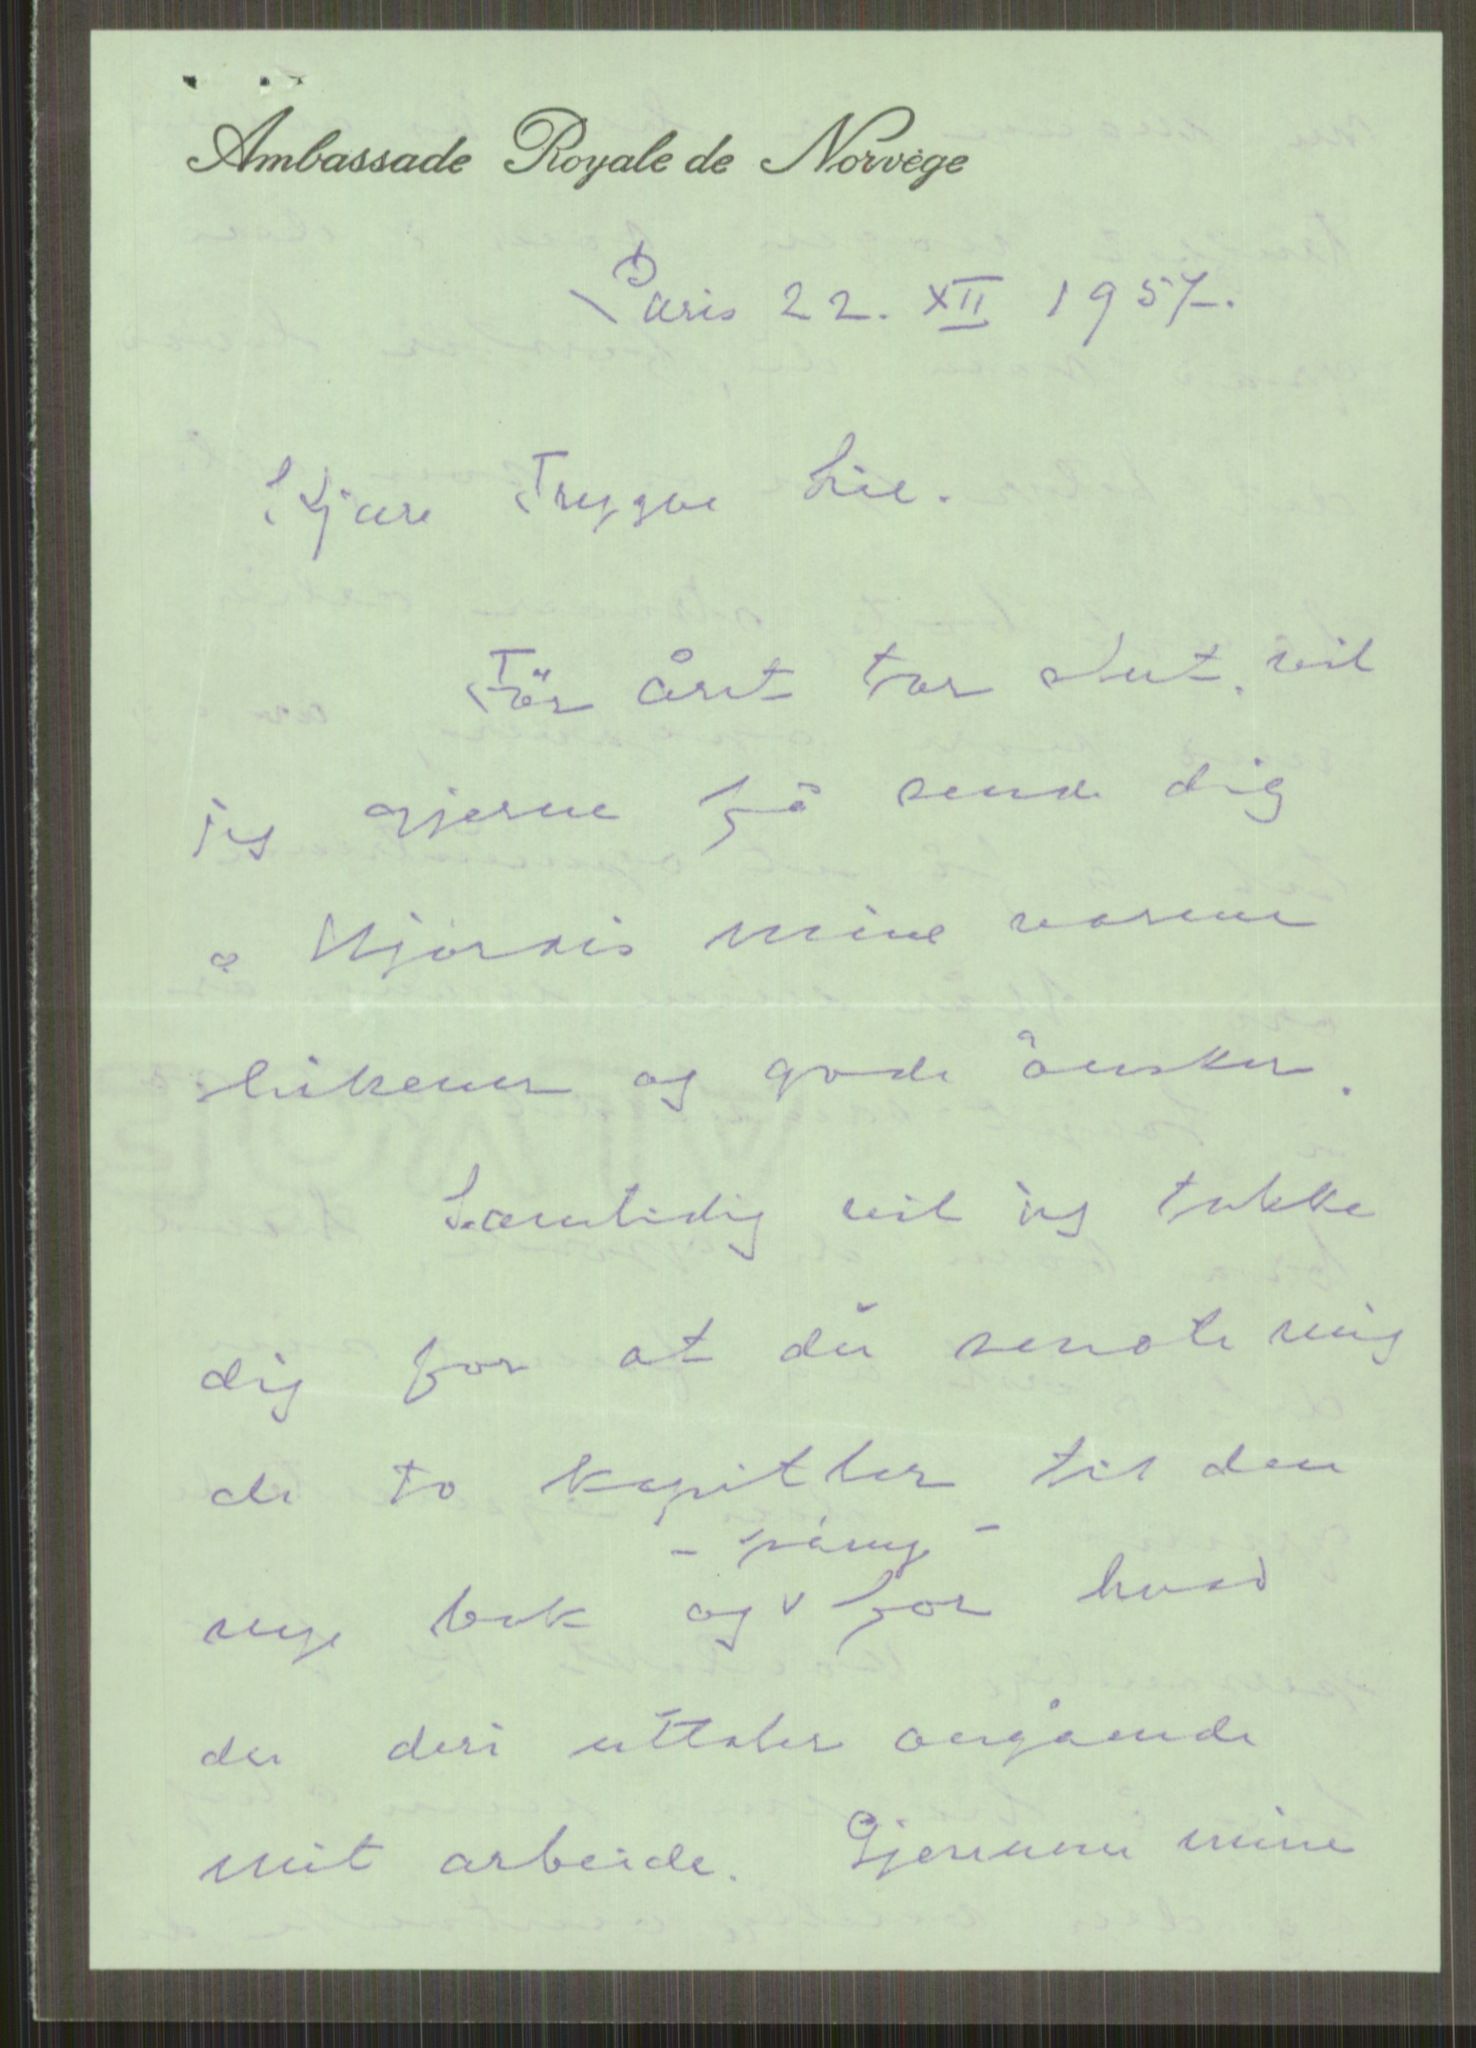 Ambassade Royale de Norvège
Paris 22. XII 1957.
Kjære Trygve Lie.
Før året tar slut, vil
jeg gjerne få sende dig
o Hjørdis mine varme
hilsener og gode ønsker.
Samtidig vil jeg takke
dig for at du sendte mig
de to kapitler til den
- påny -
nye bok og v for hvad
du deri uttaler angående
mit arbeide. Gjennem mine